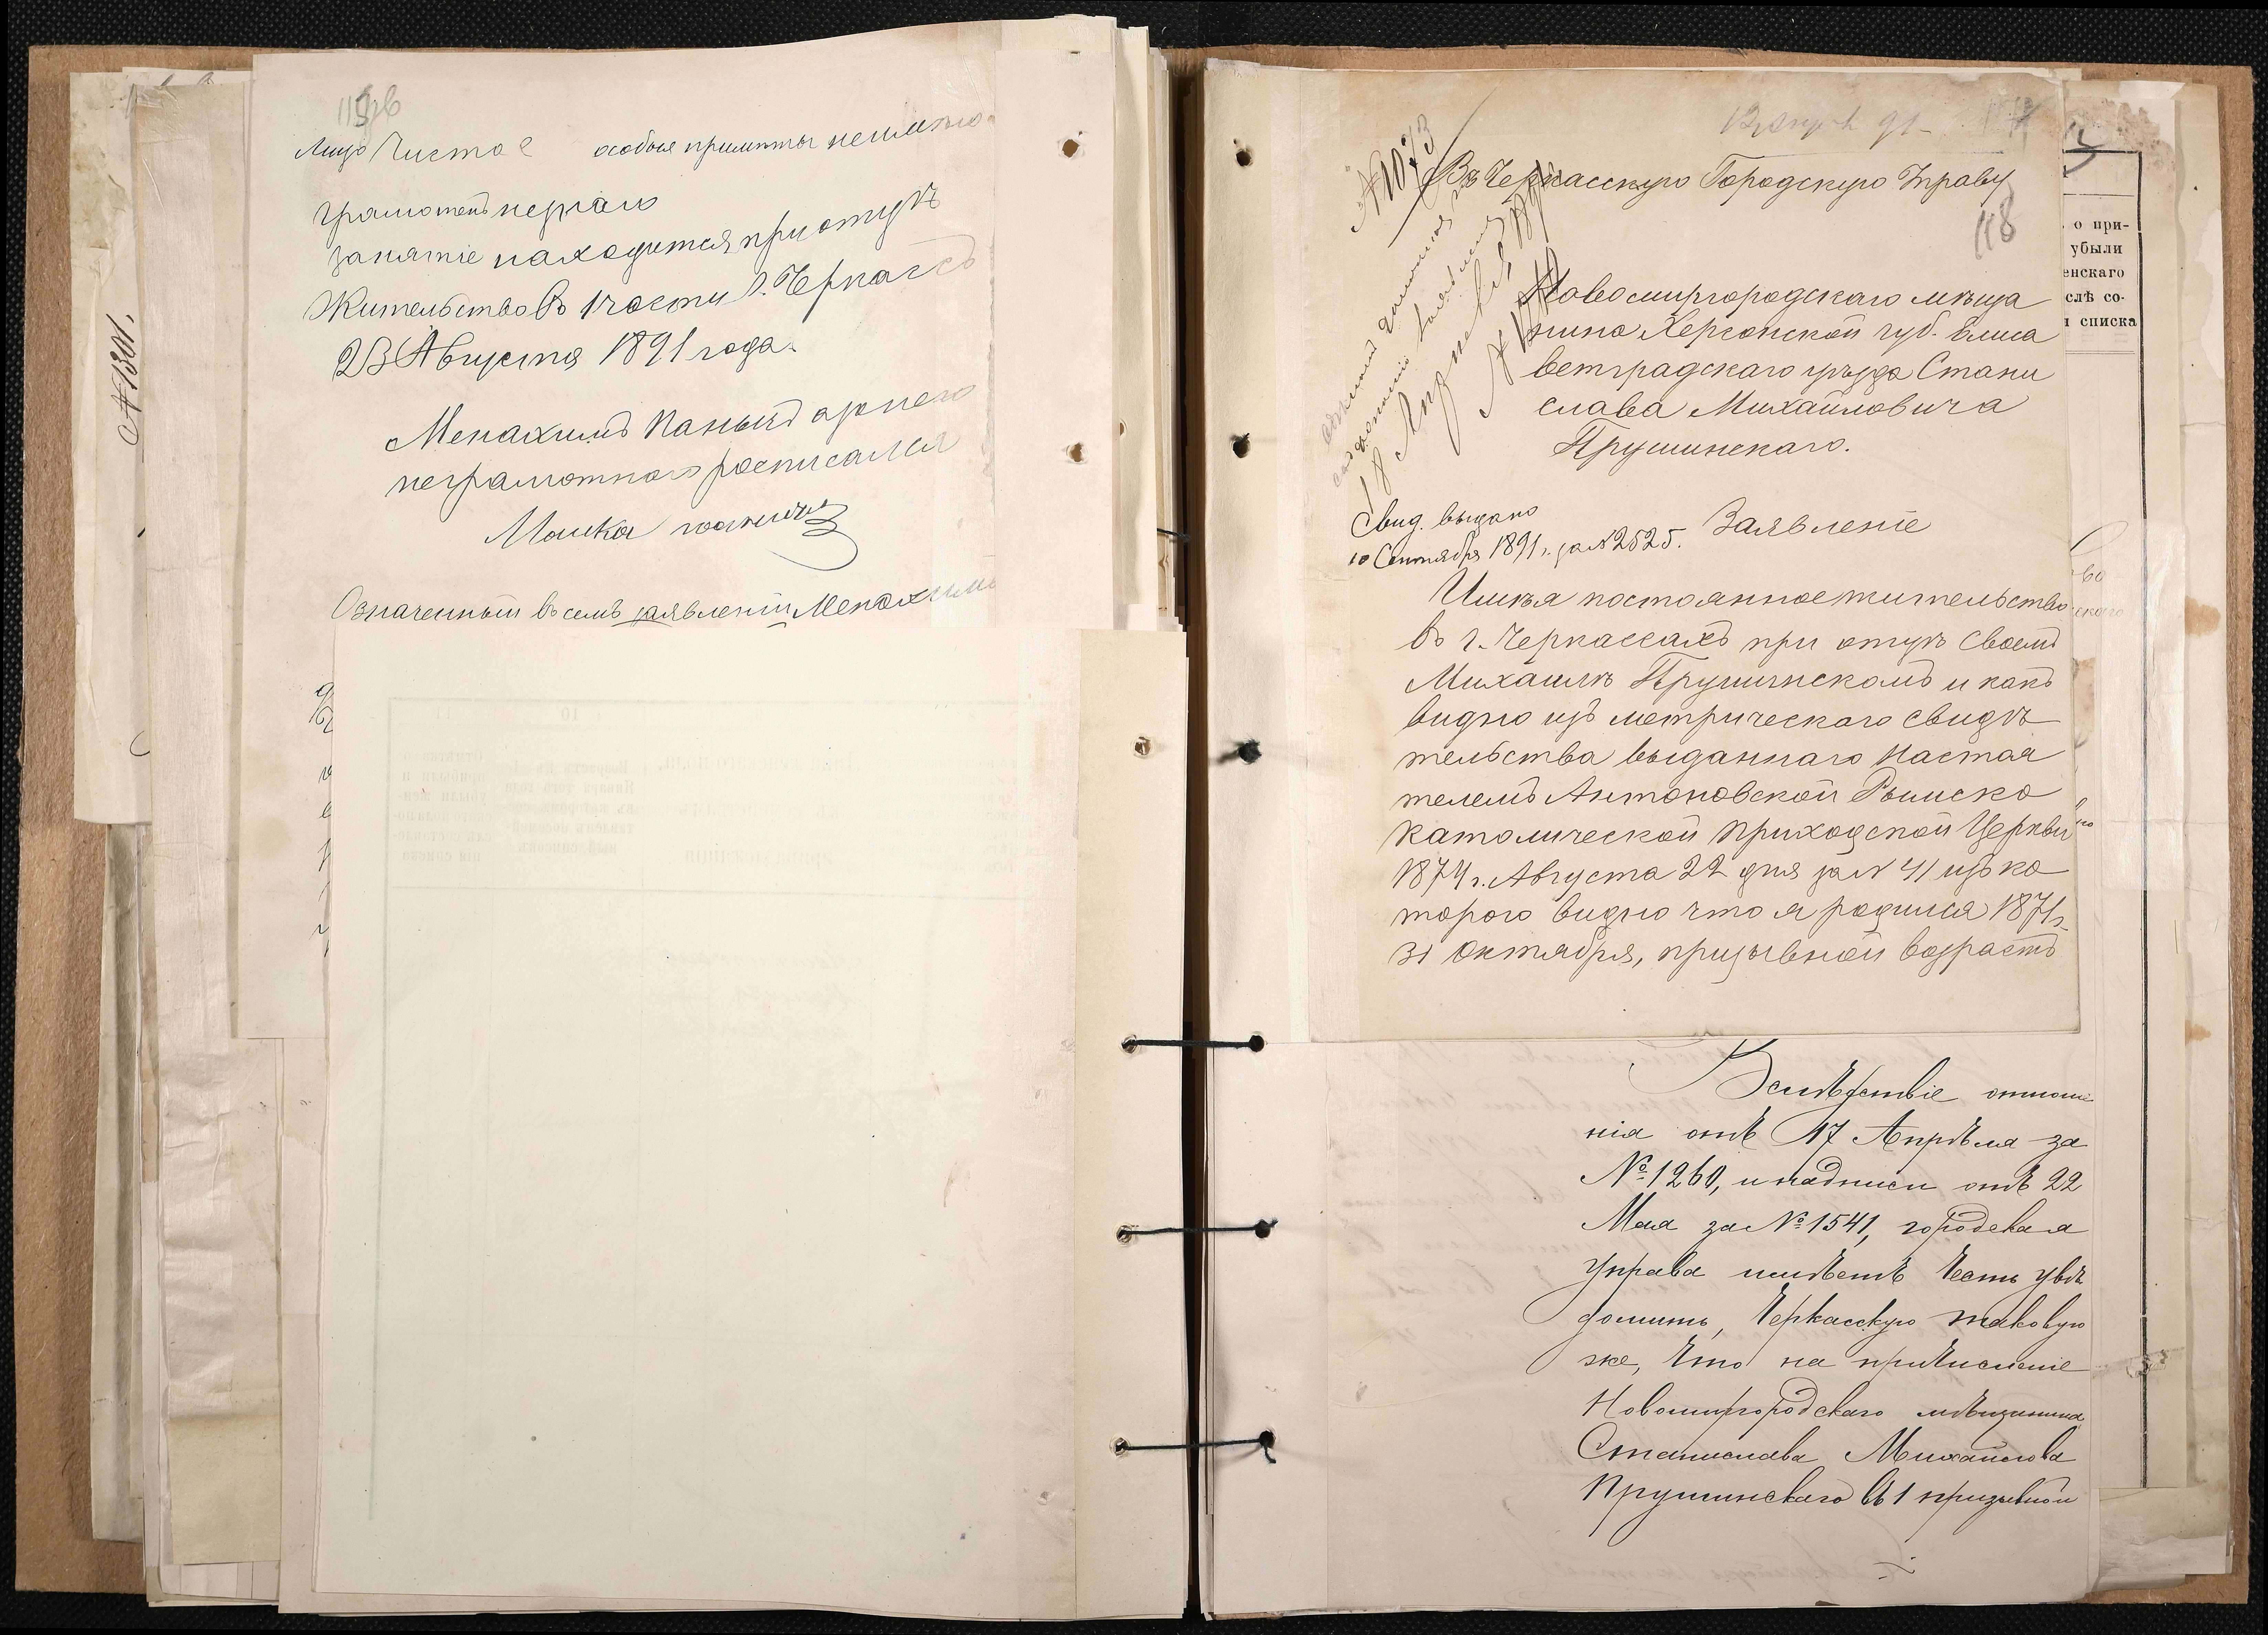 Лицо чистое особыя примѣты неимѣю
грамотенъ нерусско
занятіе находится приотцѣ
Жительство въ 1 части г. Черкассъ
23 Августа 1891 года.
Менахимъ
неграмотного росписался
Мошка
Означенный въ семъ заявленіи Менахимъ
№ 1301.
№ 1073
Въ Черкасскую Городскую Управу
118
Новомиргородскаго мѣща
нина Херсонской губ. Елиса
ветградскаго уѣзда Стани
слава Михайловича
Прушинскаго.
Свид. выдано
10 Сентября 1891 г. за № 2525.
Заявленіе
Имѣя постоянное жительство
въ г. Черкассахъ при отцѣ своемъ
Михаилѣ Прушинскомъ и какъ
видно изъ метрическаго свидѣ
тельства выданнаго настоя
телемъ Антоновской Римско
католической приходской Церкви
1874 г. Августа 22 дня за № 41 изъ ко
торого видно что я родился 1871 г.
31 Октября, призывной возрастъ
о при-
убыли
енскаго
слѣ со-
и списка
Вслѣдствіе отноше
нія отъ 17 Апрѣля за
№ 1260, и надписи отъ 22
Мая за № 1541, городская
управа имѣетъ честь увѣ
домить, Черкасскую таковую
же, что на причисленіе
Новомиргородскаго мѣщанина
Станислава Михайлова
Прушинскаго въ 1 призывной